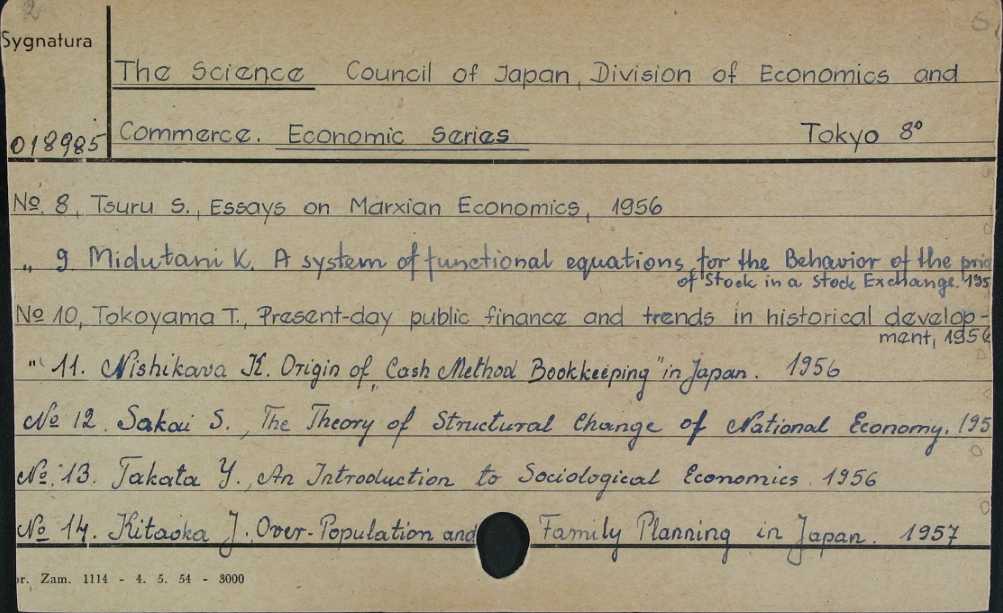 2
Sygnatura
The Science Council of Japan, Division of Economics and
018985
Commerce. Economic Series Tokyo 8°
№ 8, Tsuru S., Essays on Marxian Economics, 1956
„ 9 Midutani K. A system of functional equations for the Behavior of the pric
of Stock in a Stock Exchange. 195
№ 10, Tokoyama T., Present-day public finance and trends in historical develop-
ment, 1956
" 11. Nishikava K. Origin of „Cash Method Bookkeeping" in Japan. 1956
№ 12. Sakai S., The Theory of Structural Change of National Economy. 195
№ 13. Takata Y., An Introduction to Sociological Economics. 1956
№ 14. Kitaoka J. Over-Population and Family Planning in Japan. 1957
r. Zam. 1114 - 4. 5. 54 - 3000